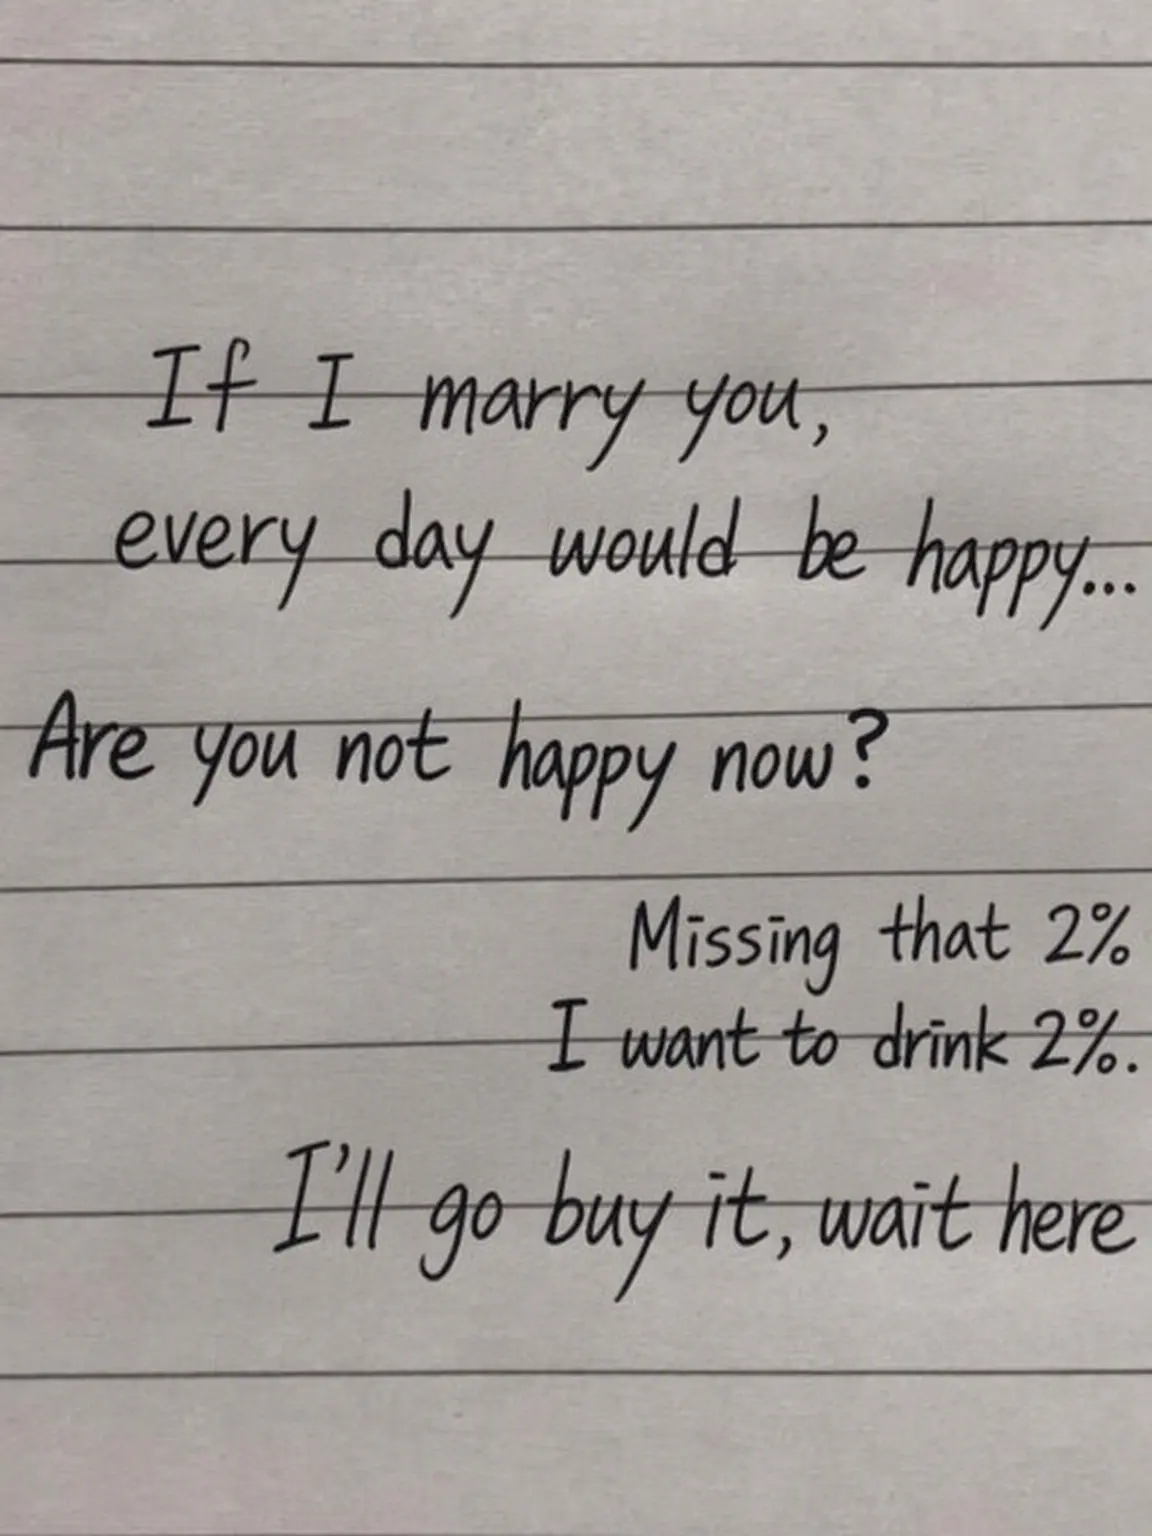 If I marry you,
every day would be happy...
Are you not happy now?
Missing that 2%
I want to drink 2%.
I'll go buy it, wait here